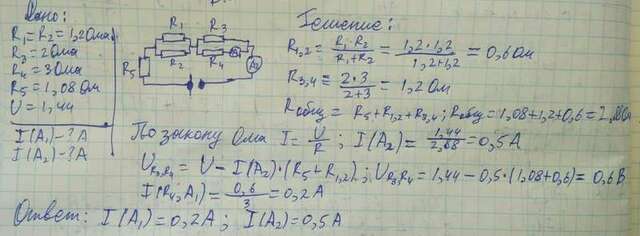 Дано:
R₁=R₂=1,2 Ома
R₃=2 Ома
R₄=3 Ома
R₅=1,08 Ом
U=1,44
I(A₁)-? А
I(A₂)-? А
R₁ R₃
R₂ R₄ A₁
R₅ A₂
Решение:
R₁,₂ = R₁·R₂ / R₁+R₂ = 1,2·1,2 / 1,2+1,2 = 0,6 Ом
R₃,₄ = 2·3 / 2+3 = 1,2 Ом
Rобщ = R₅+R₁,₂+R₃,₄; Rобщ=1,08+1,2+0,6=2,88 Ом
По закону Ома I = U/R; I(A₂) = 1,44 / 2,88 = 0,5 A
U R₃,R₄ = U - I(A₂)·(R₅+R₁,₂); U R₃,R₄ = 1,44-0,5·(1,08+0,6)=0,6 В
I(R₄,A₁) = 0,6 / 3 = 0,2 A
Ответ: I(A₁)=0,2A; I(A₂)=0,5A